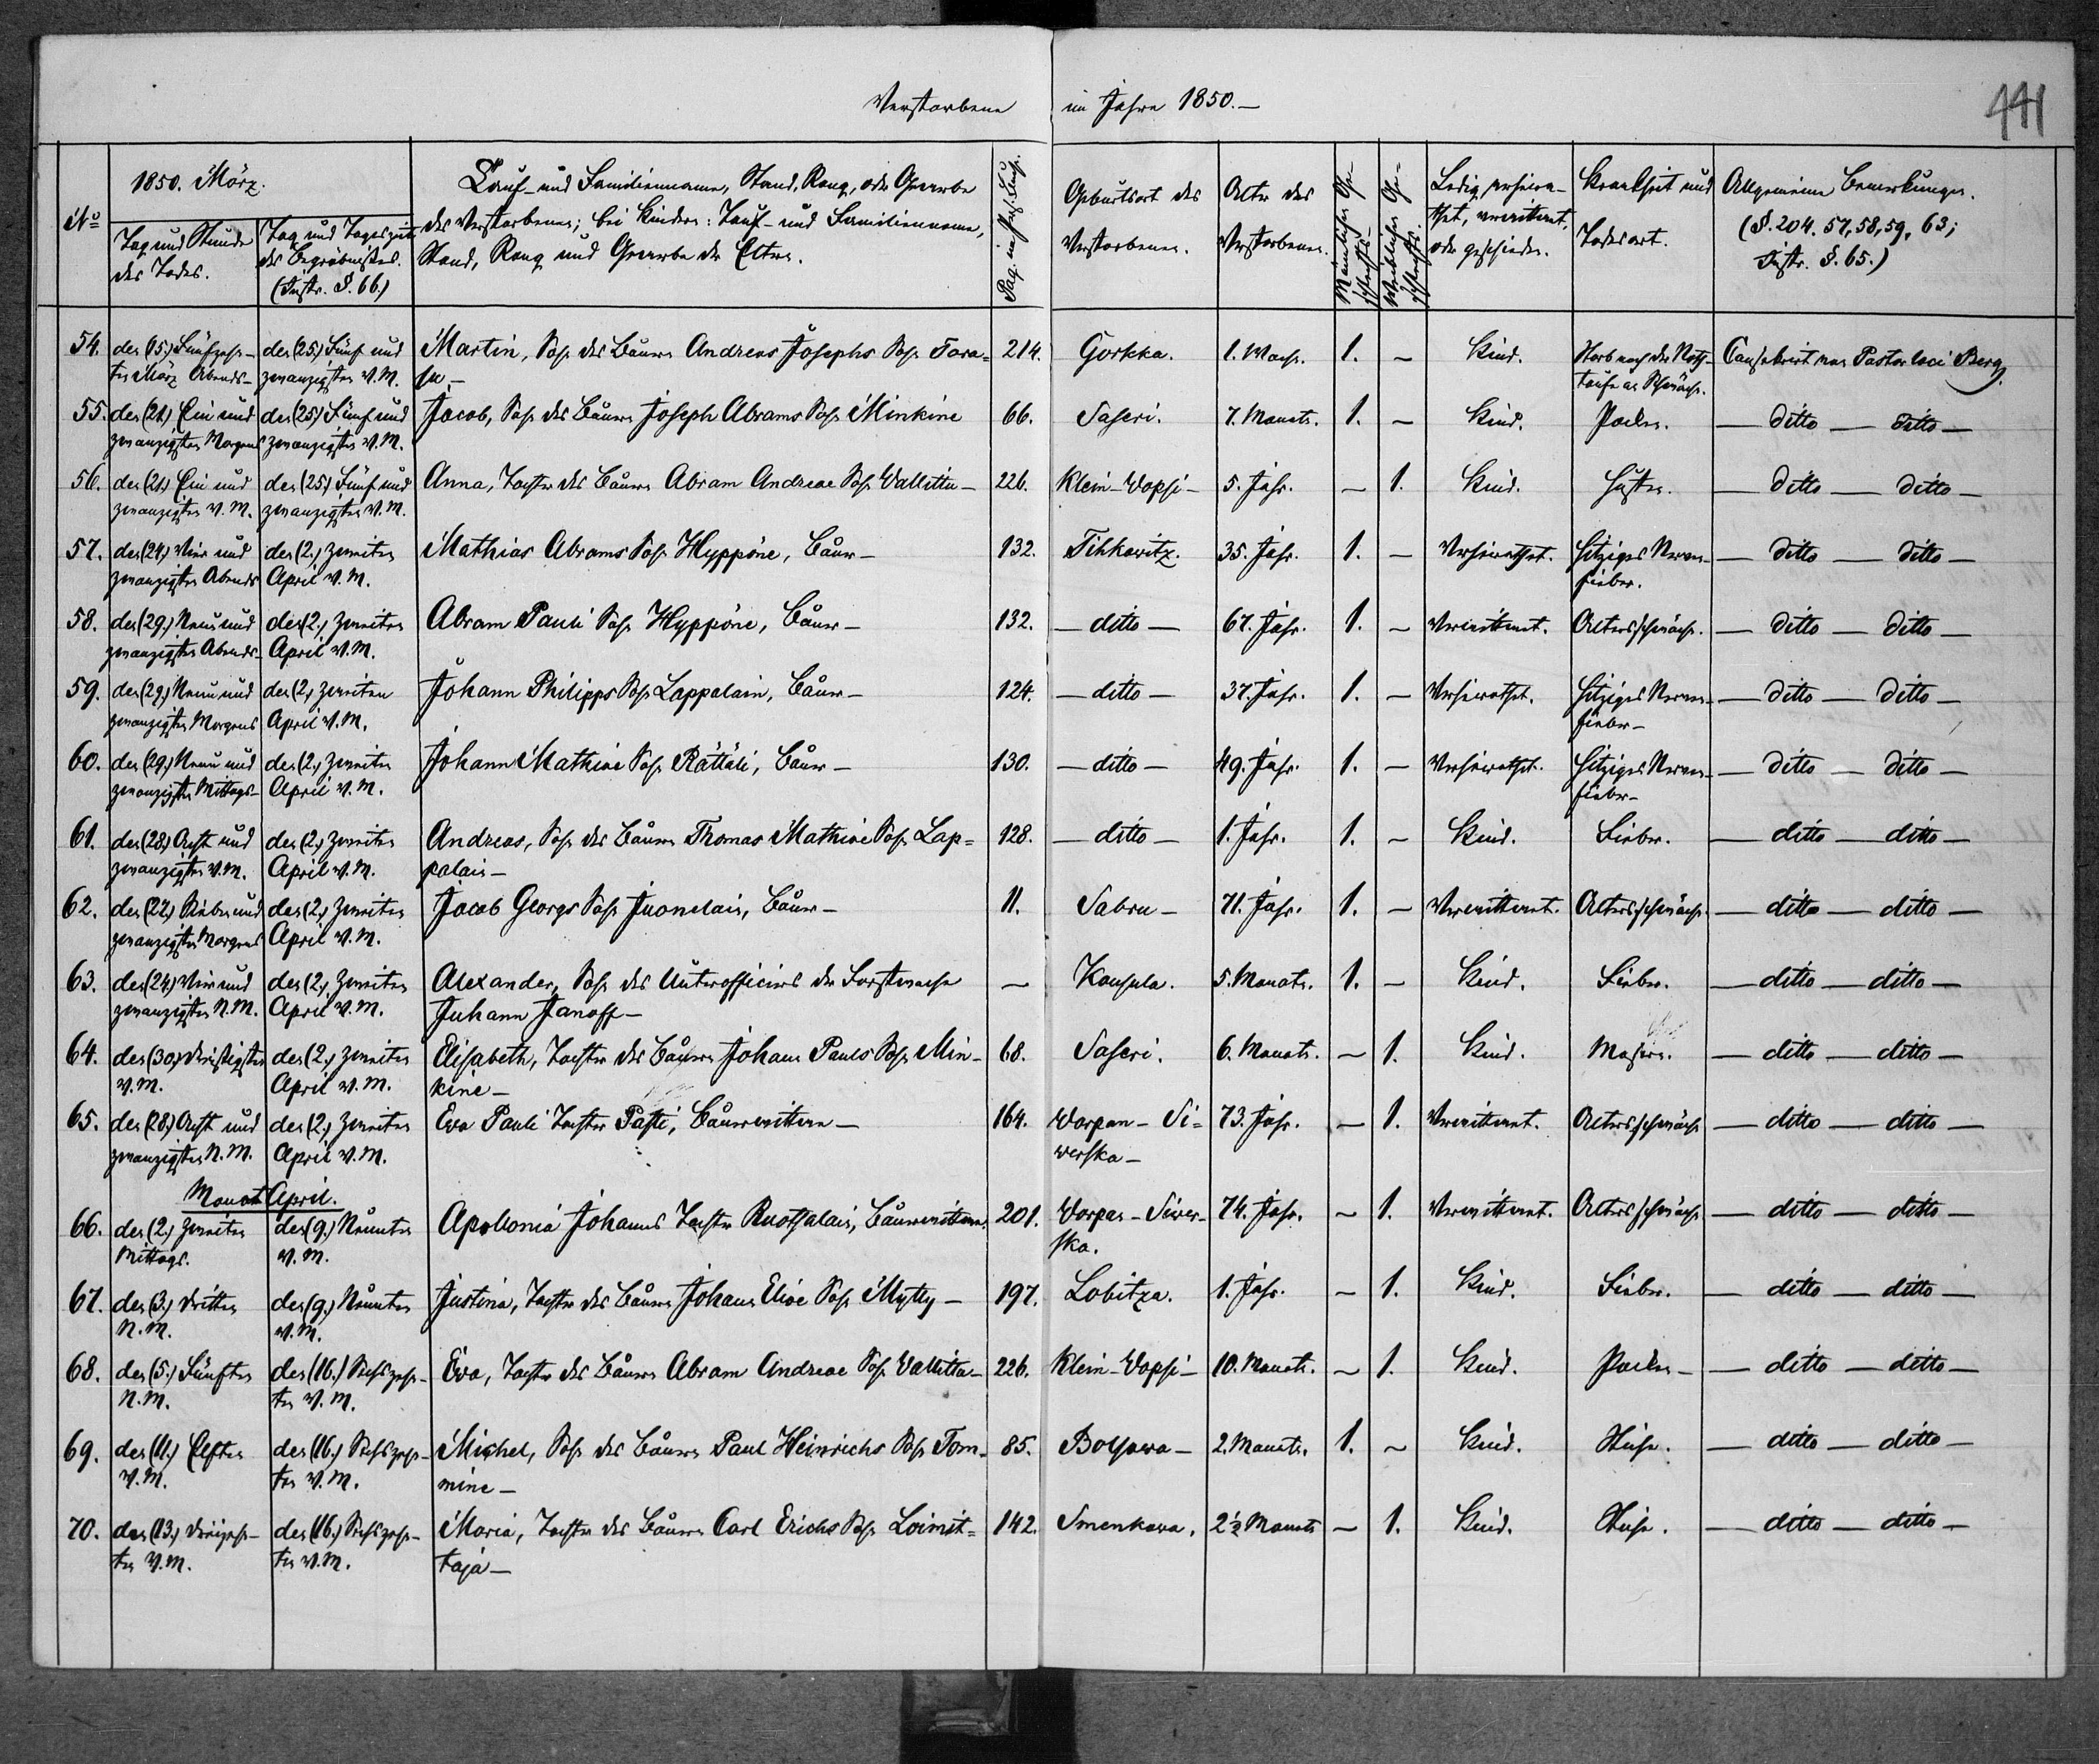 Verstorbene im Jahre 1850.—
441
No
1850. März.
Tag und Stunde des Todes.
Tag und Tageszeit des Begräbnisses. (Instr. §. 66.)
Tauf- und Familienname, Stand, Rang, oder Gewerbe des Verstorbenen; bei Kindern: Tauf- und Familienname, Stand, Rang und Gewerbe der Eltern.
Geburtsort des Verstorbenen.
Alter des Verstorbenen.
Männliches Geschlechts.
Weibliches Geschlechts.
Ledig, verheirathet, verwittwet, oder geschieden.
Krankheit und Todesart.
Allgemeine Bemerkungen. (§. 204. 57, 58, 59, 63; Instr. §. 65.)
54. den (15.) Fünfzehn- den (25.) Fünf und Martin, Sohn des Bauern Andreas Josephs Sohn Tara= 214. Gorkka. 1. Woch. 1. — Kind. Starb nach der Noth- Consekrirt von Pastor loci Berg.
ten März Abends— zwanzigsten V. M. taufe an Schwäche.
55. den (21.) Ein und den (25.) Fünf und Jacob, Sohn des Bauern Joseph Abrams Sohn Minkine 66. Saseri. 7. Monate. 1. — Kind. Pocken. — ditto — ditto —
zwanzigsten Morgens zwanzigsten V. M.
56. den (21.) Ein und den (25.) Fünf und Anna, Tochter des Bauern Abram Andreae Sohn Wallittu— 226. Klein-Wopsi— 5. Jahr. — 1. Kind. Husten. — ditto — ditto —
zwanzigsten V. M. zwanzigsten V. M.
57. den (24.) Vier und den (2.) zweiten Mathias Abrams Sohn Hyppöne, Bauer— 132. Tihkowitz. 35. Jahr. 1. — Verheirathet. Hitziges Nerven- — ditto — ditto —
zwanzigsten Abends April V. M. fieber.
58. den (29.) Neun und den (2.) zweiten Abram Pauli Sohn Hyppöne, Bauer— 132. — ditto — 67. Jahr. 1. — Verwittwet. Altersschwäche. — ditto — ditto —
zwanzigsten Abends— April V. M.
59. den (29.) Neun und den (2.) zweiten Johann Philipps Sohn Lappalain, Bauer— 124. — ditto — 37. Jahr. 1. — Verheirathet. Hitziges Nerven- — ditto — ditto —
zwanzigsten Morgens April V. M. fieber—
60. den (29.) Neun und den (2.) zweiten Johann Mathiae Sohn Rättäli, Bauer— 130. — ditto — 49. Jahr. 1. — Verheirathet. Hitziges Nerven- — ditto — ditto —
zwanzigsten Mittags— April V. M. fieber—
61. den (28.) Acht und den (2.) zweiten Andreas, Sohn des Bauern Thomas Mathiae Sohn Lap= 128. — ditto — 1. Jahr. 1. — Kind. Fieber. — ditto — ditto —
zwanzigsten V. M. April V. M. palain—
62. den (27.) Sieben und den (2.) zweiten Jacob Georgs Sohn Juonelain, Bauer— 11. Sabru— 71. Jahr. 1. — Verwittwet. Altersschwäche — ditto — ditto —
zwanzigsten Morgens April V. M.
63. den (24.) Vier und den (2.) zweiten Alexander, Sohn des Unterofficiers der Forstwache — 5. Monate. 1. — Kind. Fieber. — ditto — ditto —
zwanzigsten N. M. April V. M. Juhann Janoff—
64. den (30.) dreißigsten den (2.) zweiten Elisabeth, Tochter des Bauern Johann Pauls Sohn Min- 68. Saseri. 6. Monate. — 1. Kind. Masern. — ditto — ditto —
V. M. April V. M. kine—
65. den (28.) Acht und den (2.) zweiten Eva Pauli Tochter Pasti, Bauerwittwe— 164. Worpan- Si= 73. Jahr. — 1. Verwittwet. Altersschwäche — ditto — ditto —
zwanzigsten N. M. April V. M. werska—
Monat April.
66. den (2.) zweiten den (9.) Neunten Apollonia Johanns Tochter Ruotsalain, Bauerwittwe. 201. Worpas-Siwer- 74. Jahr. — 1. Verwittwet. Altersschwäche — ditto — ditto —
Mittags. V. M. ska.
67. den (3.) dritten den (9.) Neunten Justina, Tochter des Bauern Johann Eliae Sohn Mytty— 197. Lobitza. 1. Jahr. — 1. Kind. Fieber. — ditto — ditto —
N. M. V. M.
68. den (5.) Fünften den (16.) Sechszehn- Eva, Tochter des Bauern Abram Andreae Sohn Vallitta— 226. Klein-Wopsi— 10. Monate. — 1. Kind. Pocken— — ditto — ditto —
N. M. ten V. M.
69. den (11.) Elften den (16.) Sechszehn- Michel, Sohn des Bauern Paul Heinrichs Sohn Tom- 85. 2. Monate. 1. — Kind. — ditto — ditto —
V. M. ten V. M. mine—
70. den (13.) dreizehn- den (16.) Sechszehn- Maria, Tochter des Bauern Carl Erichs Sohn Loimit= 142. Smenkowa. 2½ Monate — 1. Kind. — ditto — ditto —
ten V. M. ten V. M. taja—